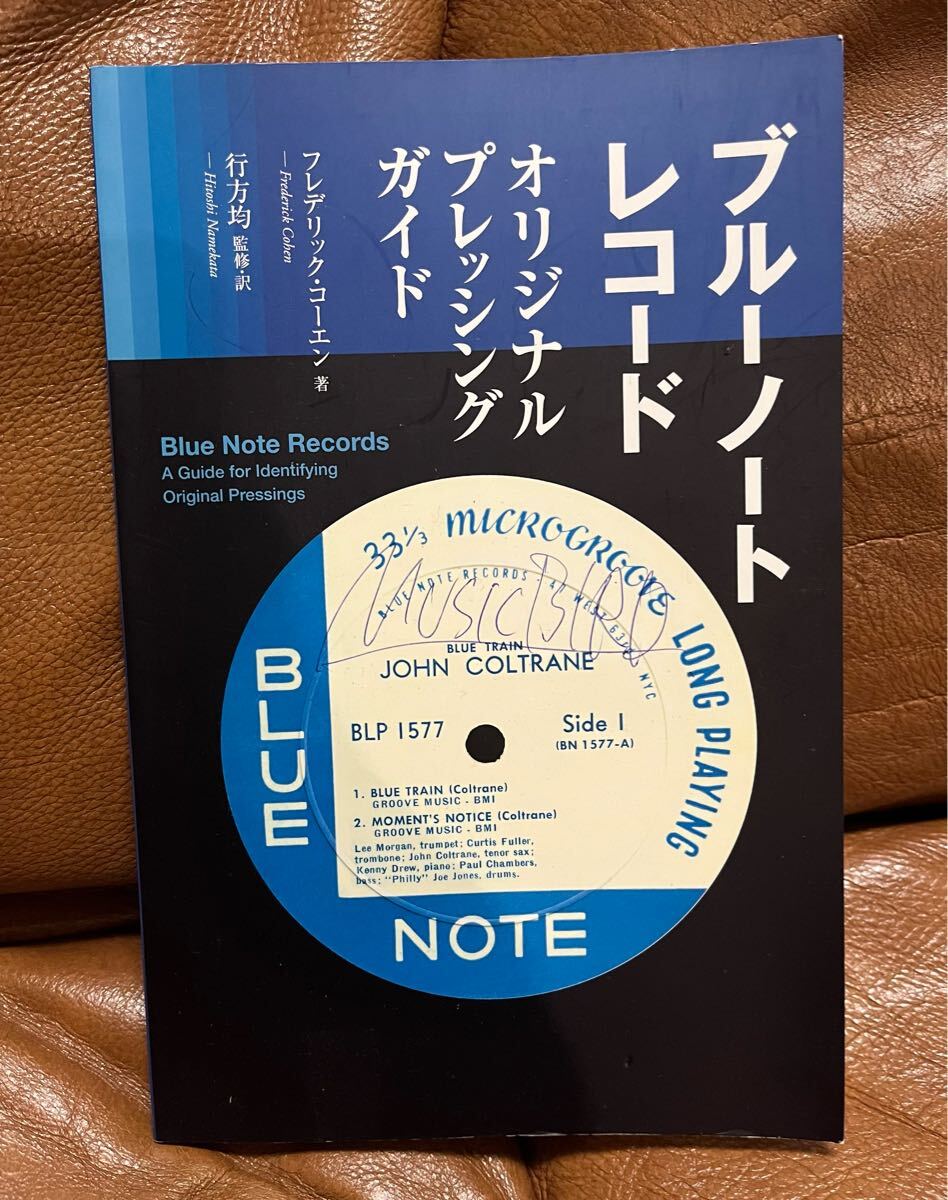 ブルーノート
レコード
オリジナル
プレッシング
ガイド
フレデリック・コーエン 著
—Frederick Cohen
行方均 監修・訳
—Hitoshi Namekata
Blue Note Records
A Guide for Identifying
Original Pressings
33⅓ MICROGROOVE LONG PLAYING
BLUE NOTE RECORDS · 47 WEST 63rd NYC
MUSIC BIRD
BLUE TRAIN
JOHN COLTRANE
BLP 1577
Side 1
(BN 1577-A)
1. BLUE TRAIN (Coltrane)
GROOVE MUSIC - BMI
2. MOMENT'S NOTICE (Coltrane)
GROOVE MUSIC - BMI
Lee Morgan, trumpet; Curtis Fuller,
trombone; John Coltrane, tenor sax;
Kenny Drew, piano; Paul Chambers,
bass; "Philly" Joe Jones, drums.
BLUE
NOTE